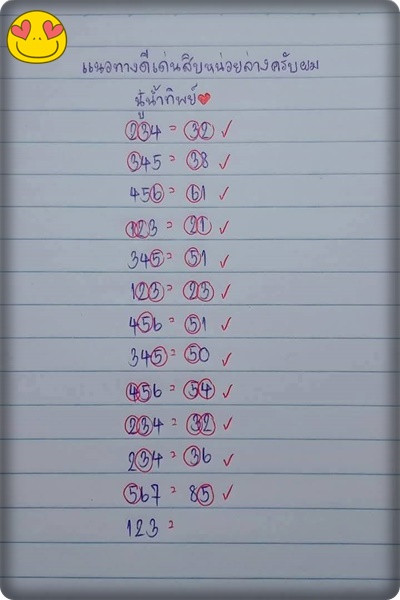 แนวทางดีเด่นสิบหน่อยล่างครับผม
นู๋น้ำทิพย์
234 = 32 ✓
345 = 38 ✓
456 = 61 ✓
123 = 21 ✓
345 = 51 ✓
123 = 23 ✓
456 = 51 ✓
345 = 50 ✓
456 = 54 ✓
234 = 32 ✓
234 = 36 ✓
567 = 85 ✓
123 =